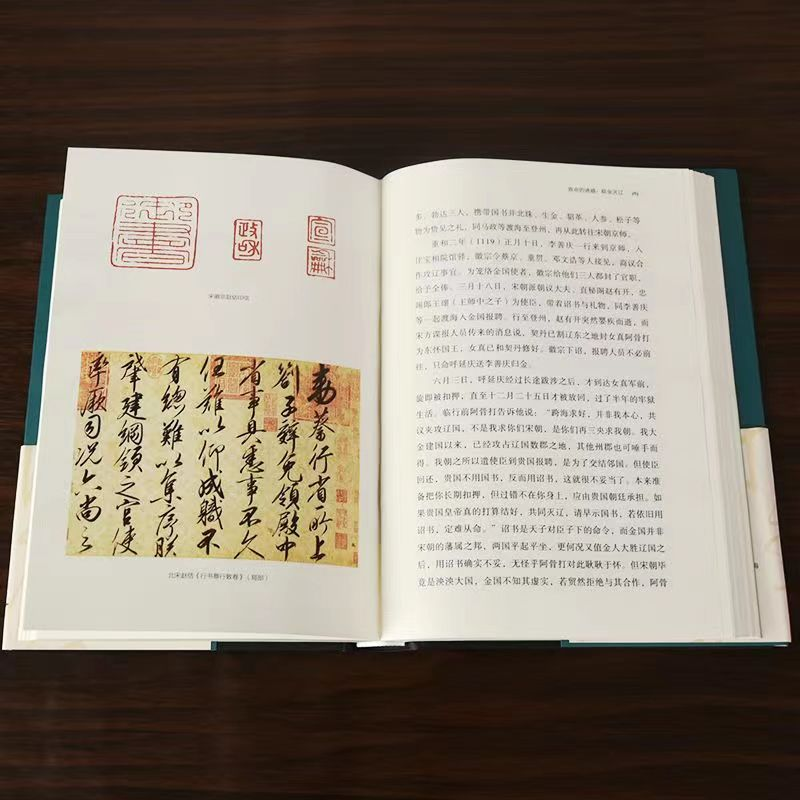 政和
宣和
宋徽宗赵佶印信
勅蔡行省所上
劄子辭免領殿中
省事具悉事不久
任難以仰成職不
有總難以集序朕
肇建綱領之官使
率厥司況六尚之
北宋赵佶《行书蔡行敕卷》（局部）
致命的诱惑：联金灭辽
多、勃达三人，携带国书并北珠、生金、貂革、人参、松子等
物为贽见之礼，同马政等渡海至登州，再从此转往宋朝京师。
重和二年（1119）正月十日，李善庆一行来到京师，入
住宝相院馆驿，徽宗令蔡京、童贯、邓文诰等人接见，商议合
作攻辽事宜。为笼络金国使者，徽宗给他们三人都封了官职，
给予全俸。三月十八日，宋朝派朝议大夫、直秘阁赵有开，忠
翊郎王瓌（王师中之子）为使臣，带着诏书与礼物，同李善庆
等一起渡海入金国报聘。行至登州，赵有开突然婴疾而逝，而
宋方谍报人员传来的消息说，契丹已割辽东之地封女真阿骨打
为东怀国王，女真已和契丹修好。徽宗下诏，报聘人员不必前
往，只命呼延庆送李善庆归金。
六月三日，呼延庆经过长途跋涉之后，才到达女真军前，
旋即被扣押，直至十二月二十五日才被放回，过了半年的牢狱
生活。临行前阿骨打告诉他说：“跨海求好，并非我本心，共
议夹攻辽国，不是我求你们宋朝，是你们再三央求我朝。我大
金建国以来，已经攻占辽国数郡之地，其他州郡也可唾手而
得。我朝之所以遣使到贵国报聘，是为了交结邻国。但使臣
回还，贵国不用国书，反而用诏书，这就很不妥当了。本来准
备把你长期扣押，但过错不在你身上，应由贵国朝廷承担。如
果贵国皇帝真的打算结好，共同灭辽，请早示国书，若依旧用
诏书，定难从命。”诏书是天子对臣子下的命令，而金国并非
宋朝的藩属之邦，两国平起平坐，更何况又值金人大胜辽国之
后，用诏书确实不妥，无怪乎阿骨打对此耿耿于怀。但宋朝毕
竟是泱泱大国，金国不知其虚实，若贸然拒绝与其合作，阿骨